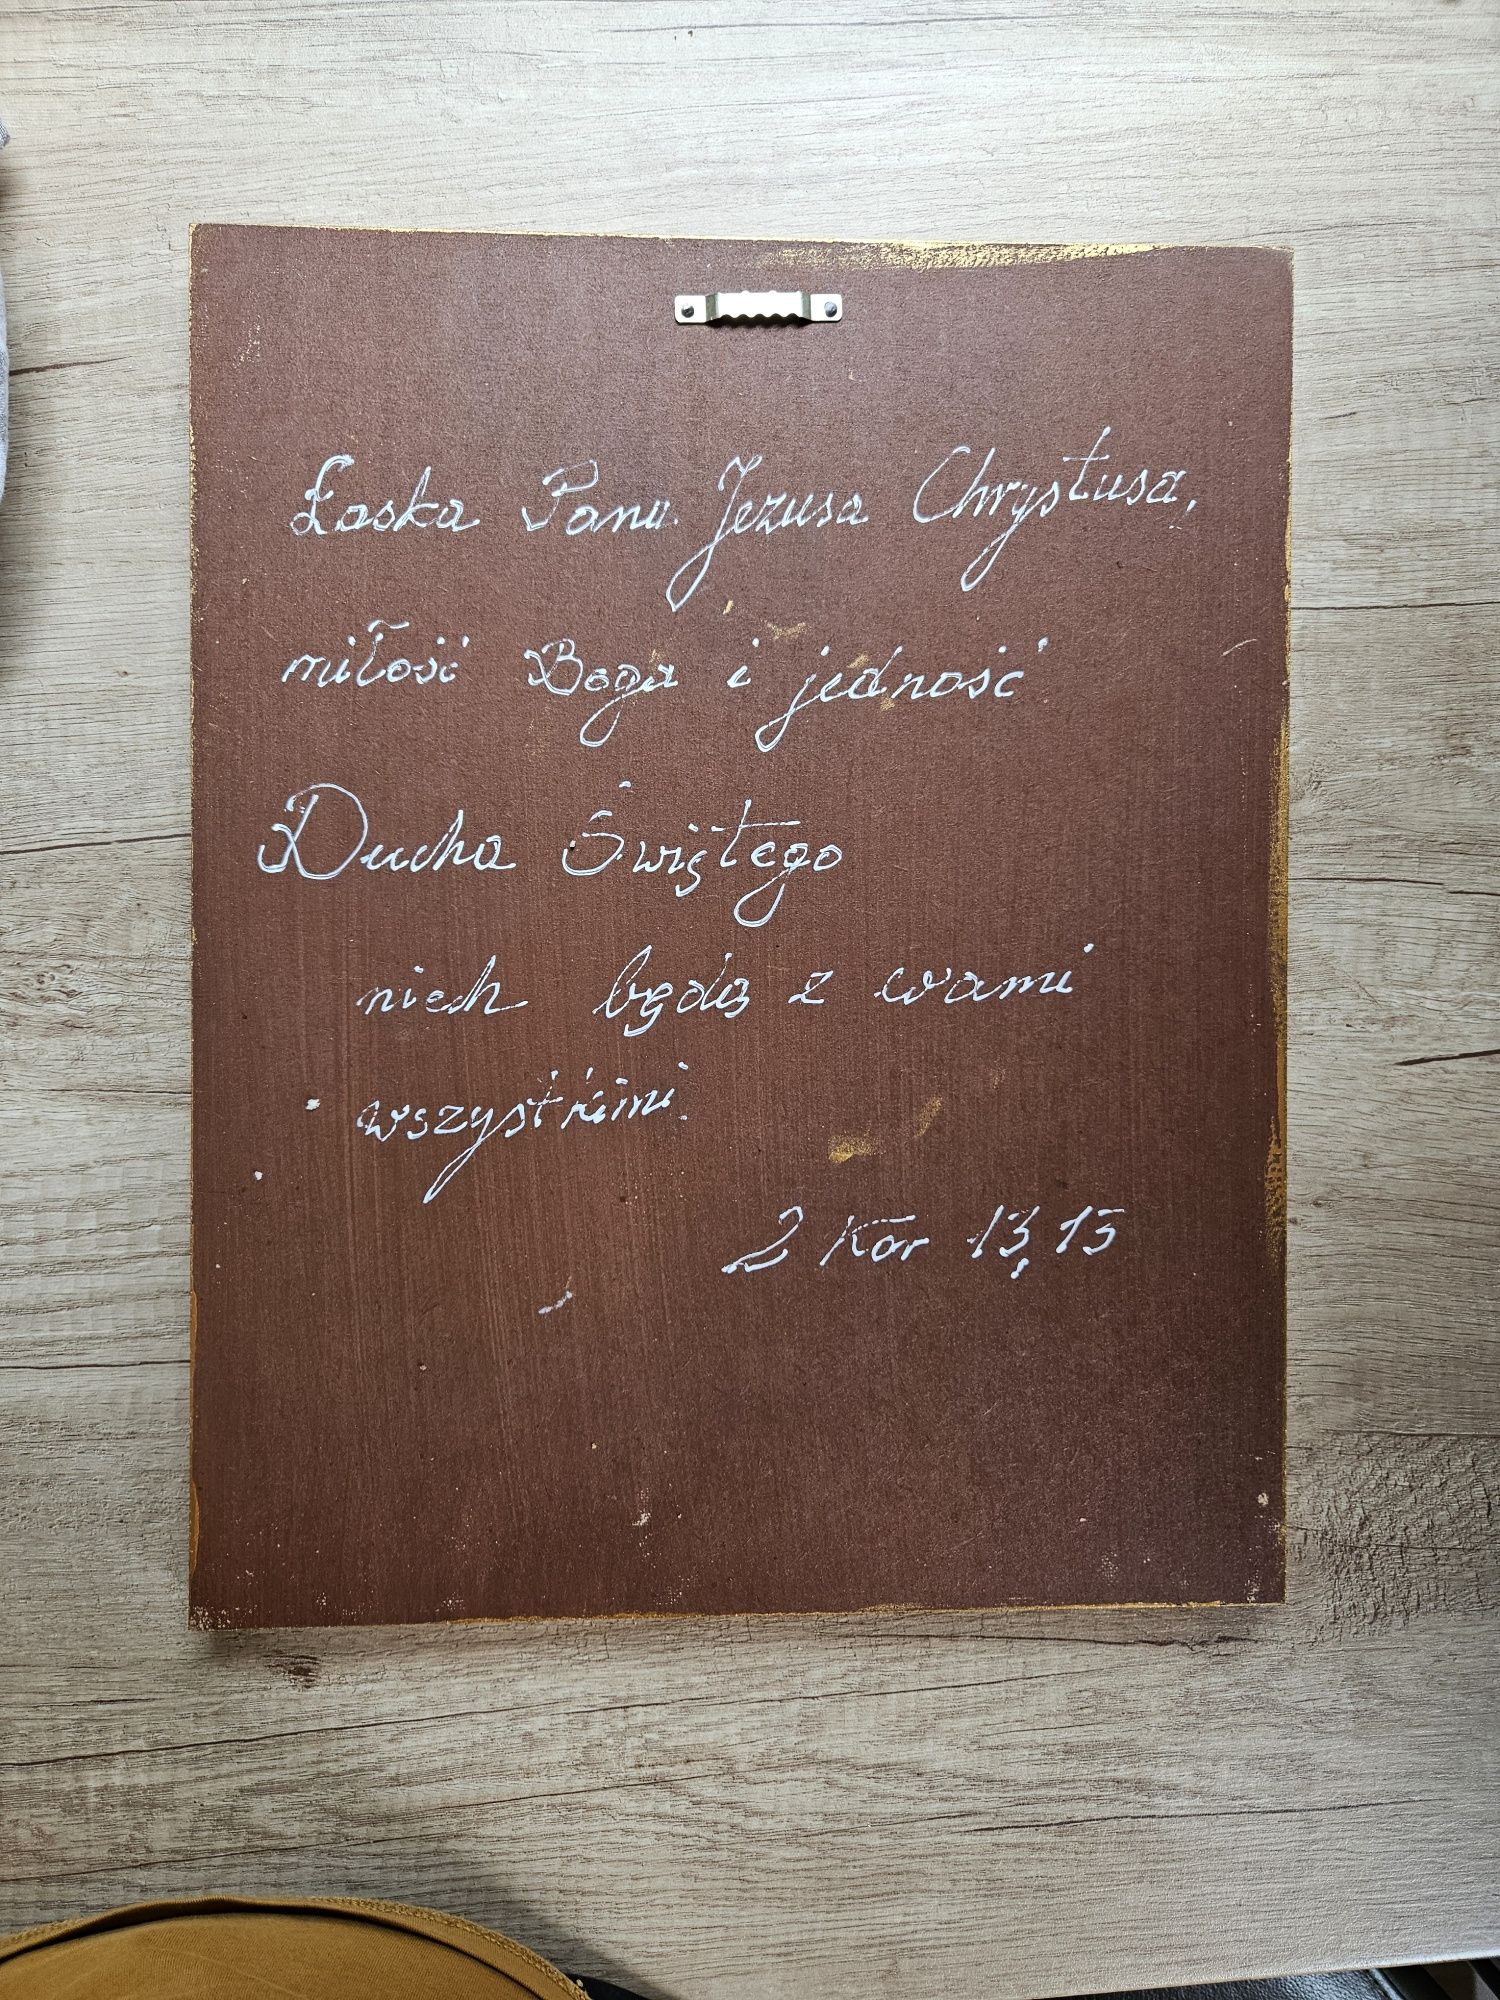 Łaska Pana Jezusa Chrystusa,
miłość Boga i jedność
Ducha Świętego
niech będą z wami
wszystkimi.
2 Kor 13,15